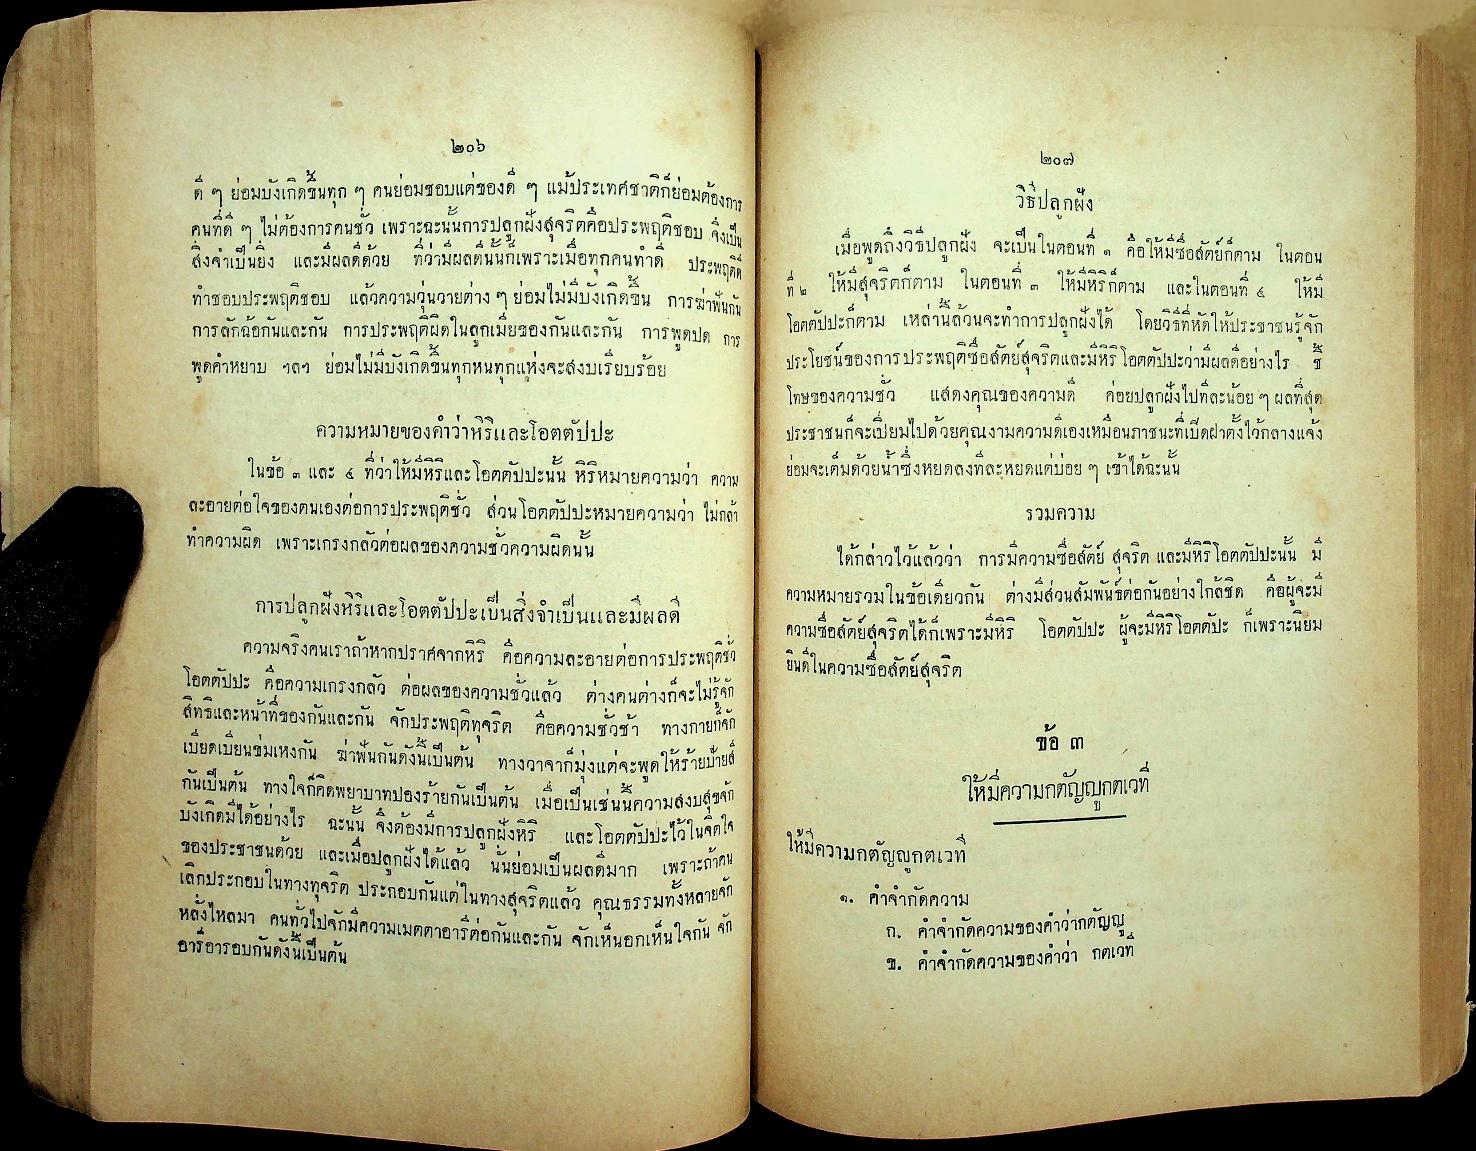 ๒๐๖
ดี ๆ ย่อมบังเกิดขึ้นทุก ๆ คนย่อมชอบแต่ของดี ๆ แม้ประเทศชาติก็ย่อมต้องการ
คนที่ดี ๆ ไม่ต้องการคนชั่ว เพราะฉะนั้นการปลูกฝังสุจริตคือประพฤติชอบ จึงเป็น
สิ่งจำเป็นยิ่ง และมีผลดีด้วย ที่ว่ามีผลดีนั้นก็เพราะเมื่อทุกคนทำดี ประพฤติดี
ทำชอบประพฤติชอบ แล้วความวุ่นวายต่าง ๆ ย่อมไม่มีบังเกิดขึ้น การฆ่าฟันกัน
การลักฉ้อกันและกัน การประพฤติผิดในลูกเมียของกันและกัน การพูดปด การ
พูดคำหยาบ ฯลฯ ย่อมไม่มีบังเกิดขึ้นทุกหนทุกแห่งจะสงบเรียบร้อย
ความหมายของคำว่าหิริและโอตตัปปะ
ในข้อ ๓ และ ๔ ที่ว่าให้มีหิริและโอตตัปปะนั้น หิริหมายความว่า ความ
ละอายต่อใจของตนเองต่อการประพฤติชั่ว ส่วนโอตตัปปะหมายความว่า ไม่กล้า
ทำความผิด เพราะเกรงกลัวต่อผลของความชั่วความผิดนั้น
การปลูกฝังหิริและโอตตัปปะเป็นสิ่งจำเป็นและมีผลดี
ความจริงคนเราถ้าหากปราศจากหิริ คือความละอายต่อการประพฤติชั่ว
โอตตัปปะ คือความเกรงกลัว ต่อผลของความชั่วแล้ว ต่างคนต่างก็จะไม่รู้จัก
สิทธิและหน้าที่ของกันและกัน จักประพฤติทุจริต คือความชั่วช้า ทางกายก็จัก
เบียดเบียนข่มเหงกัน ฆ่าฟันกันดังนี้เป็นต้น ทางวาจาก็มุ่งแต่จะพูดให้ร้ายป้ายสี
กันเป็นต้น ทางใจก็คิดพยาบาทปองร้ายกันเป็นต้น เมื่อเป็นเช่นนี้ความสงบสุขจัก
บังเกิดมีได้อย่างไร ฉะนั้น จึงต้องมีการปลูกฝังหิริ และโอตตัปปะไว้ในจิตใจ
ของประชาชนด้วย และเมื่อปลูกฝังได้แล้ว นั่นย่อมเป็นผลดีมาก เพราะถ้าคน
เลิกประกอบในทางทุจริต ประกอบกันแต่ในทางสุจริตแล้ว คุณธรรมทั้งหลายจัก
หลั่งไหลมา คนทั่วไปจักมีความเมตตาอารีต่อกันและกัน จักเห็นอกเห็นใจกัน จัก
อารีอารอบกันดังนี้เป็นต้น
๒๐๗
วิธีปลูกฝัง
เมื่อพูดถึงวิธีปลูกฝัง จะเป็นในตอนที่ ๑ คือให้มีซื่อสัตย์ก็ตาม ในตอน
ที่ ๒ ให้มีสุจริตก็ตาม ในตอนที่ ๓ ให้มีหิริก็ตาม และในตอนที่ ๔ ให้มี
โอตตัปปะก็ตาม เหล่านี้ล้วนจะทำการปลูกฝังได้ โดยวิธีที่หัดให้ประชาชนรู้จัก
ประโยชน์ของการประพฤติซื่อสัตย์สุจริตและมีหิริโอตตัปปะว่ามีผลดีอย่างไร ชี้
โทษของความชั่ว แสดงคุณของความดี ค่อยปลูกฝังไปทีละน้อย ๆ ผลที่สุด
ประชาชนก็จะเปี่ยมไปด้วยคุณงามความดีเองเหมือนภาชนะที่เปิดฝาตั้งไว้กลางแจ้ง
ย่อมจะเต็มด้วยน้ำซึ่งหยดลงทีละหยดแต่บ่อย ๆ เข้าได้ฉะนั้น
รวมความ
ได้กล่าวไว้แล้วว่า การมีความซื่อสัตย์ สุจริต และมีหิริโอตตัปปะนั้น มี
ความหมายรวมในข้อเดียวกัน ต่างมีส่วนสัมพันธ์ต่อกันอย่างใกล้ชิด คือผู้จะมี
ความซื่อสัตย์สุจริตได้ก็เพราะมีหิริ โอตตัปปะ ผู้จะมีหิริโอตตัปะ ก็เพราะนิยม
ยินดีในความซื่อสัตย์สุจริต
ข้อ ๓
ให้มีความกตัญญูกตเวที
ให้มีความกตัญญูกตเวที
๑. คำจำกัดความ
ก. คำจำกัดความของคำว่ากตัญญู
ข. คำจำกัดความของคำว่า กตเวที